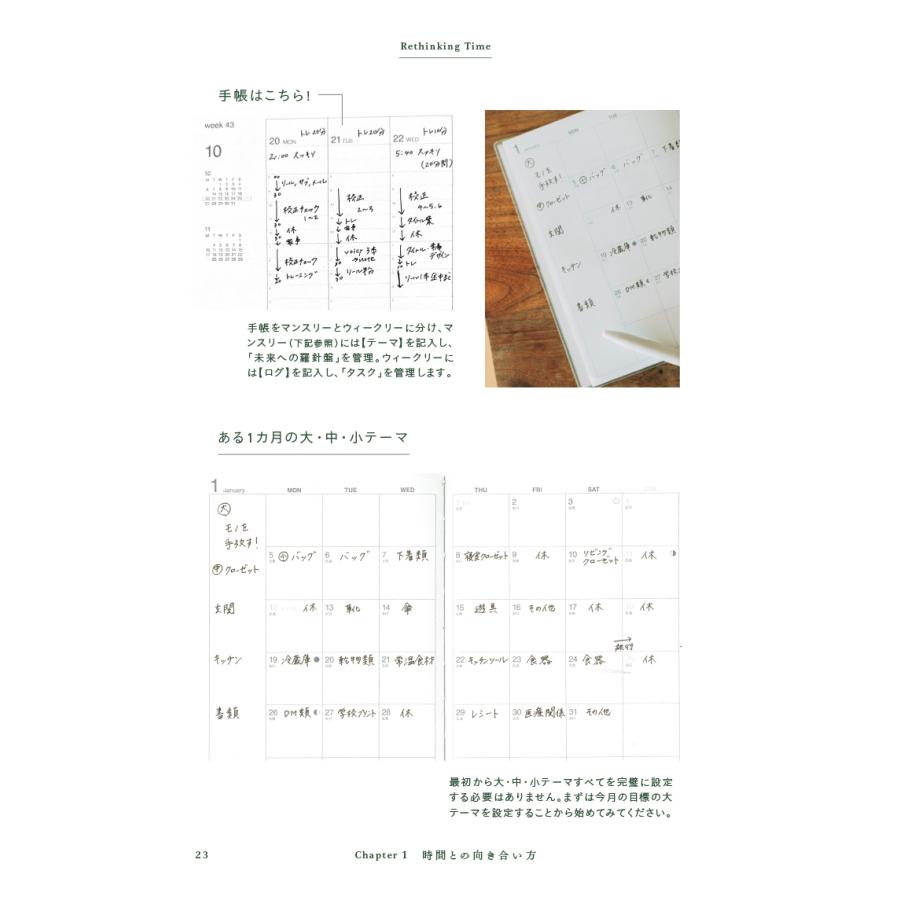 Rethinking Time
手帳はこちら!
week 43
10
20 MON トレ20分
21 TUE トレ20分
22 WED トレ10分
5:40 スッキリ
(20分間)
校正チェック
1〜2
休
校正チェック
トレーニング
校正
2〜3
トレ
休
校正
4〜5.6
タイトル案
休
デザイン
トレ
手帳をマンスリーとウィークリーに分け、マ
ンスリー(下記参照)には【テーマ】を記入し、
「未来への羅針盤」を管理。ウィークリーに
は【ログ】を記入し、「タスク」を管理します。
1 January
MON TUE
大
モノを
手放す!
中 クローゼット
小 バッグ バッグ 下着類
玄関
休 靴
キッチン
冷蔵庫 乾物類
書類
DM類
ある1カ月の大・中・小テーマ
1 January MON TUE WED THU FRI SAT
大
モノを
手放す!
1 2 3 4
中 クローゼット 5 小 バッグ 6 バッグ 7 下着類 8 寝室クローゼット 9 休 10 リビングクローゼット 11 休
玄関 12 休 13 靴 14 傘 15 遊具 16 その他 17 休 18 休
キッチン 19 冷蔵庫 20 乾物類 21 常温食材 22 キッチンツール 23 食器 24 食器 25 休
書類 26 DM類 27 学校プリント 28 休 29 レシート 30 医療関係 31 その他
最初から大・中・小テーマすべてを完璧に設定
する必要はありません。まずは今月の目標の大
テーマを設定することから始めてみてください。
23 Chapter 1 時間との向き合い方